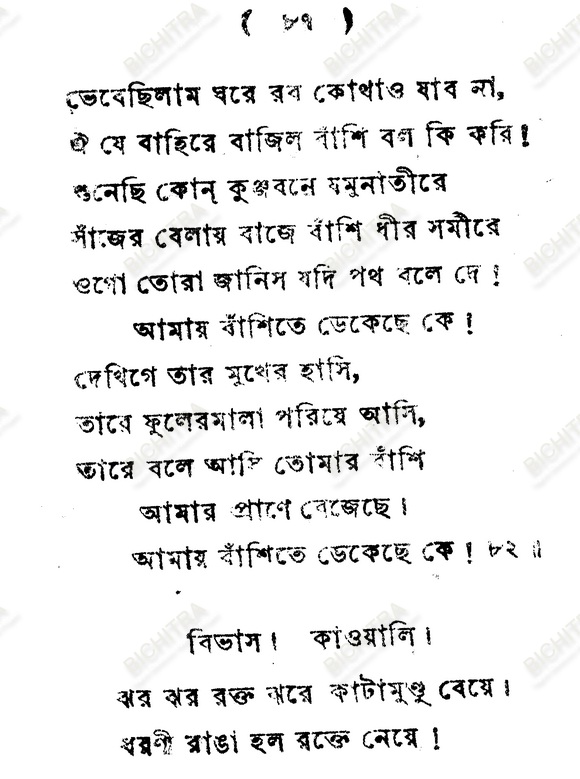 ( ৮৭ )
ভেবেছিলাম ঘরে রব কোথাও যাব না,
ঐ যে বাহিরে বাজিল বাঁশি বল কি করি !
শুনেছি কোন্ কুঞ্জবনে যমুনাতীরে
সাঁজের বেলায় বাজে বাঁশি ধীর সমীরে
ওগো তোরা জানিস যদি পথ বলে দে !
আমায় বাঁশিতে ডেকেছে কে !
দেখিগে তার মুখের হাসি,
তারে ফুলেরমালা পরিয়ে আসি,
তারে বলে আসি তোমার বাঁশি
আমার প্রাণে বেজেছে ।
আমায় বাঁশিতে ডেকেছে কে ! ৮২ ॥
বিভাস । কাওয়ালি ।
ঝর ঝর রক্ত ঝরে কাটামুণ্ডু বেয়ে ।
ধরণী রাঙা হল রক্তে নেয়ে !
BICHITRA